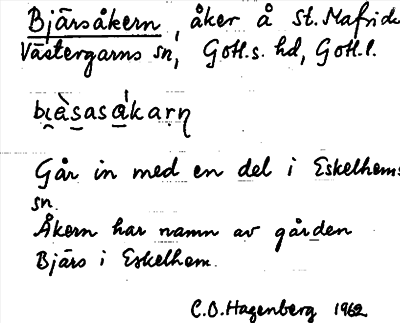 Bjärsåkern, åker å St. Mafrids
Västergarns sn, Gotl.s. hd, Gotl. l.
bɩ̯æ̀sasákaṛṇ
Går in med en del i Eskelhems
sn.
Åkern har namn av gården
Bjärs i Eskelhem.
C.O. Hagenberg 1962